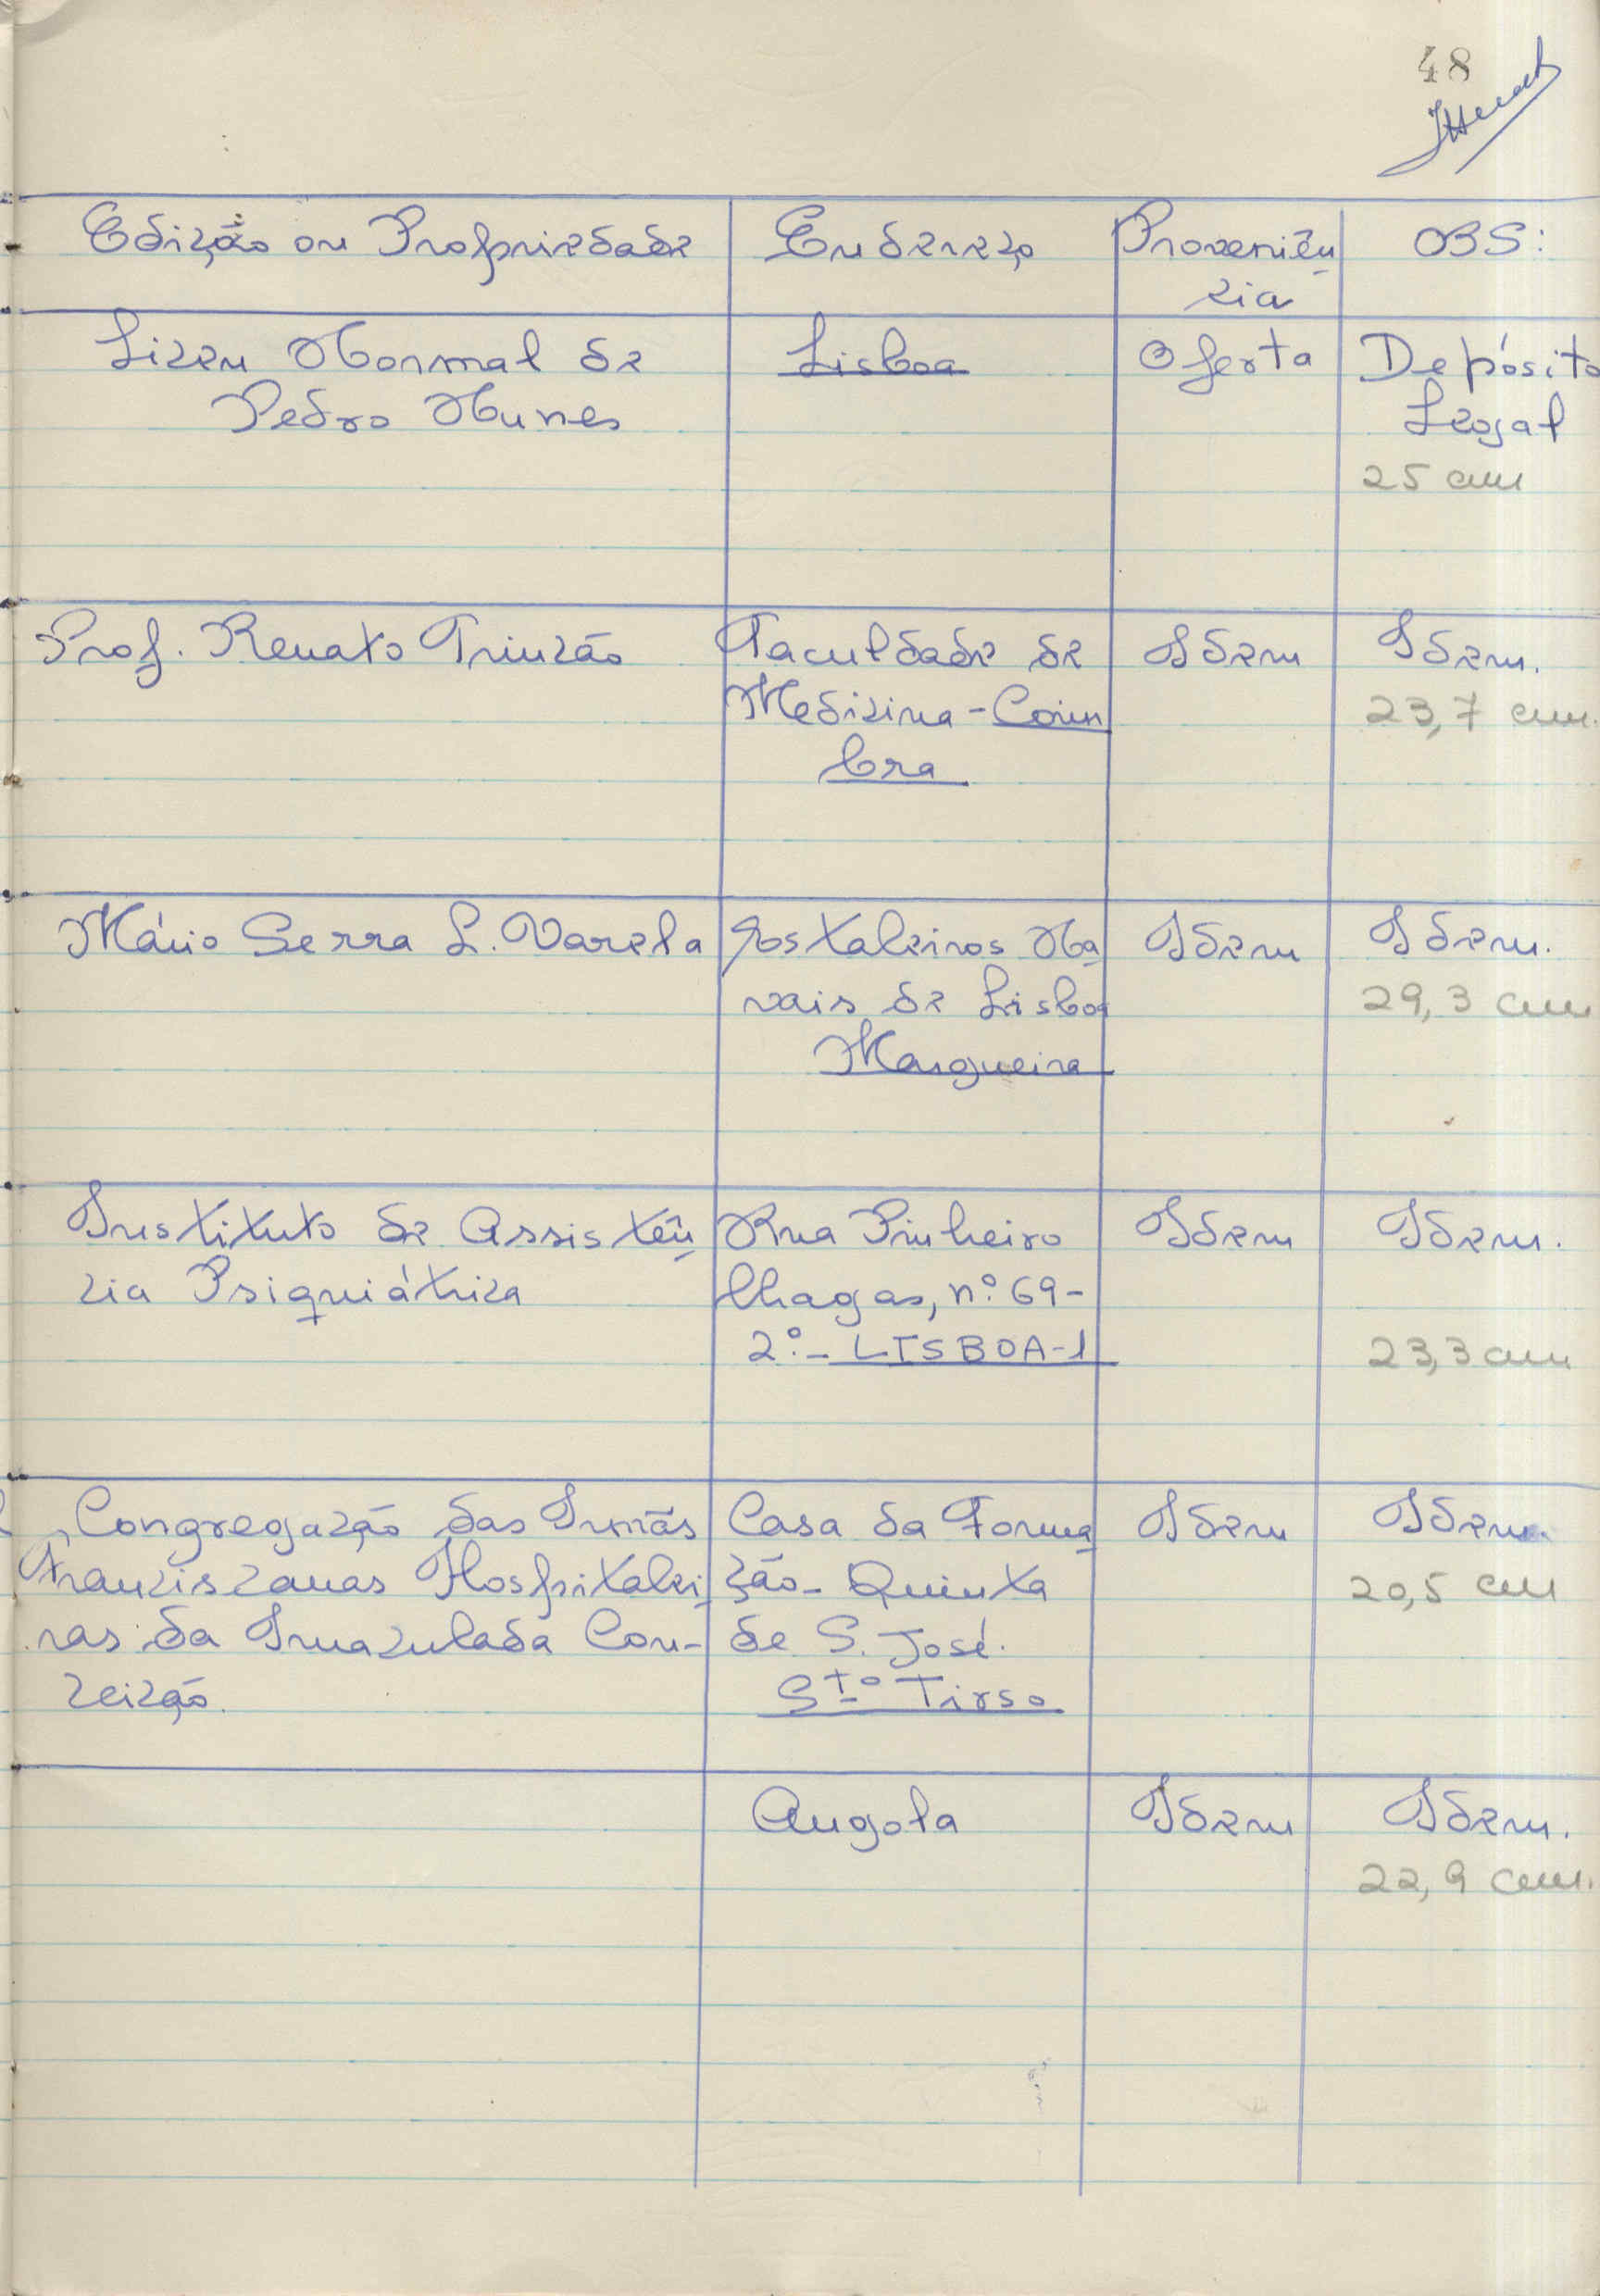 48
Edição ou Propriedade Endereço Proveniên OBS:
cia
Liceu Normal de Lisboa Oferta Depósito
Pedro Nunes Legal
25 cm
Prof. Renato Trincão Faculdade de Idem Idem.
Medicina - Coim 23,7 cm.
bra
Mário Serra L. Varela Estaleiros Na Idem Idem.
vais de Lisboa 29,3 cm
Margueira
Instituto de Assistên Rua Pinheiro Idem Idem.
cia Psiquiátrica Chagas, nº 69-
2º.- LISBOA-1 23,3 cm
Congregação das Irmãs Casa da Forma Idem Idem.
Franciscanas Hospitalei ção- Quinta 20,5 cm
ras da Imaculada Con- de S. José.
ceição. Stº Tirso
Angola Idem Idem.
22,9 cm.